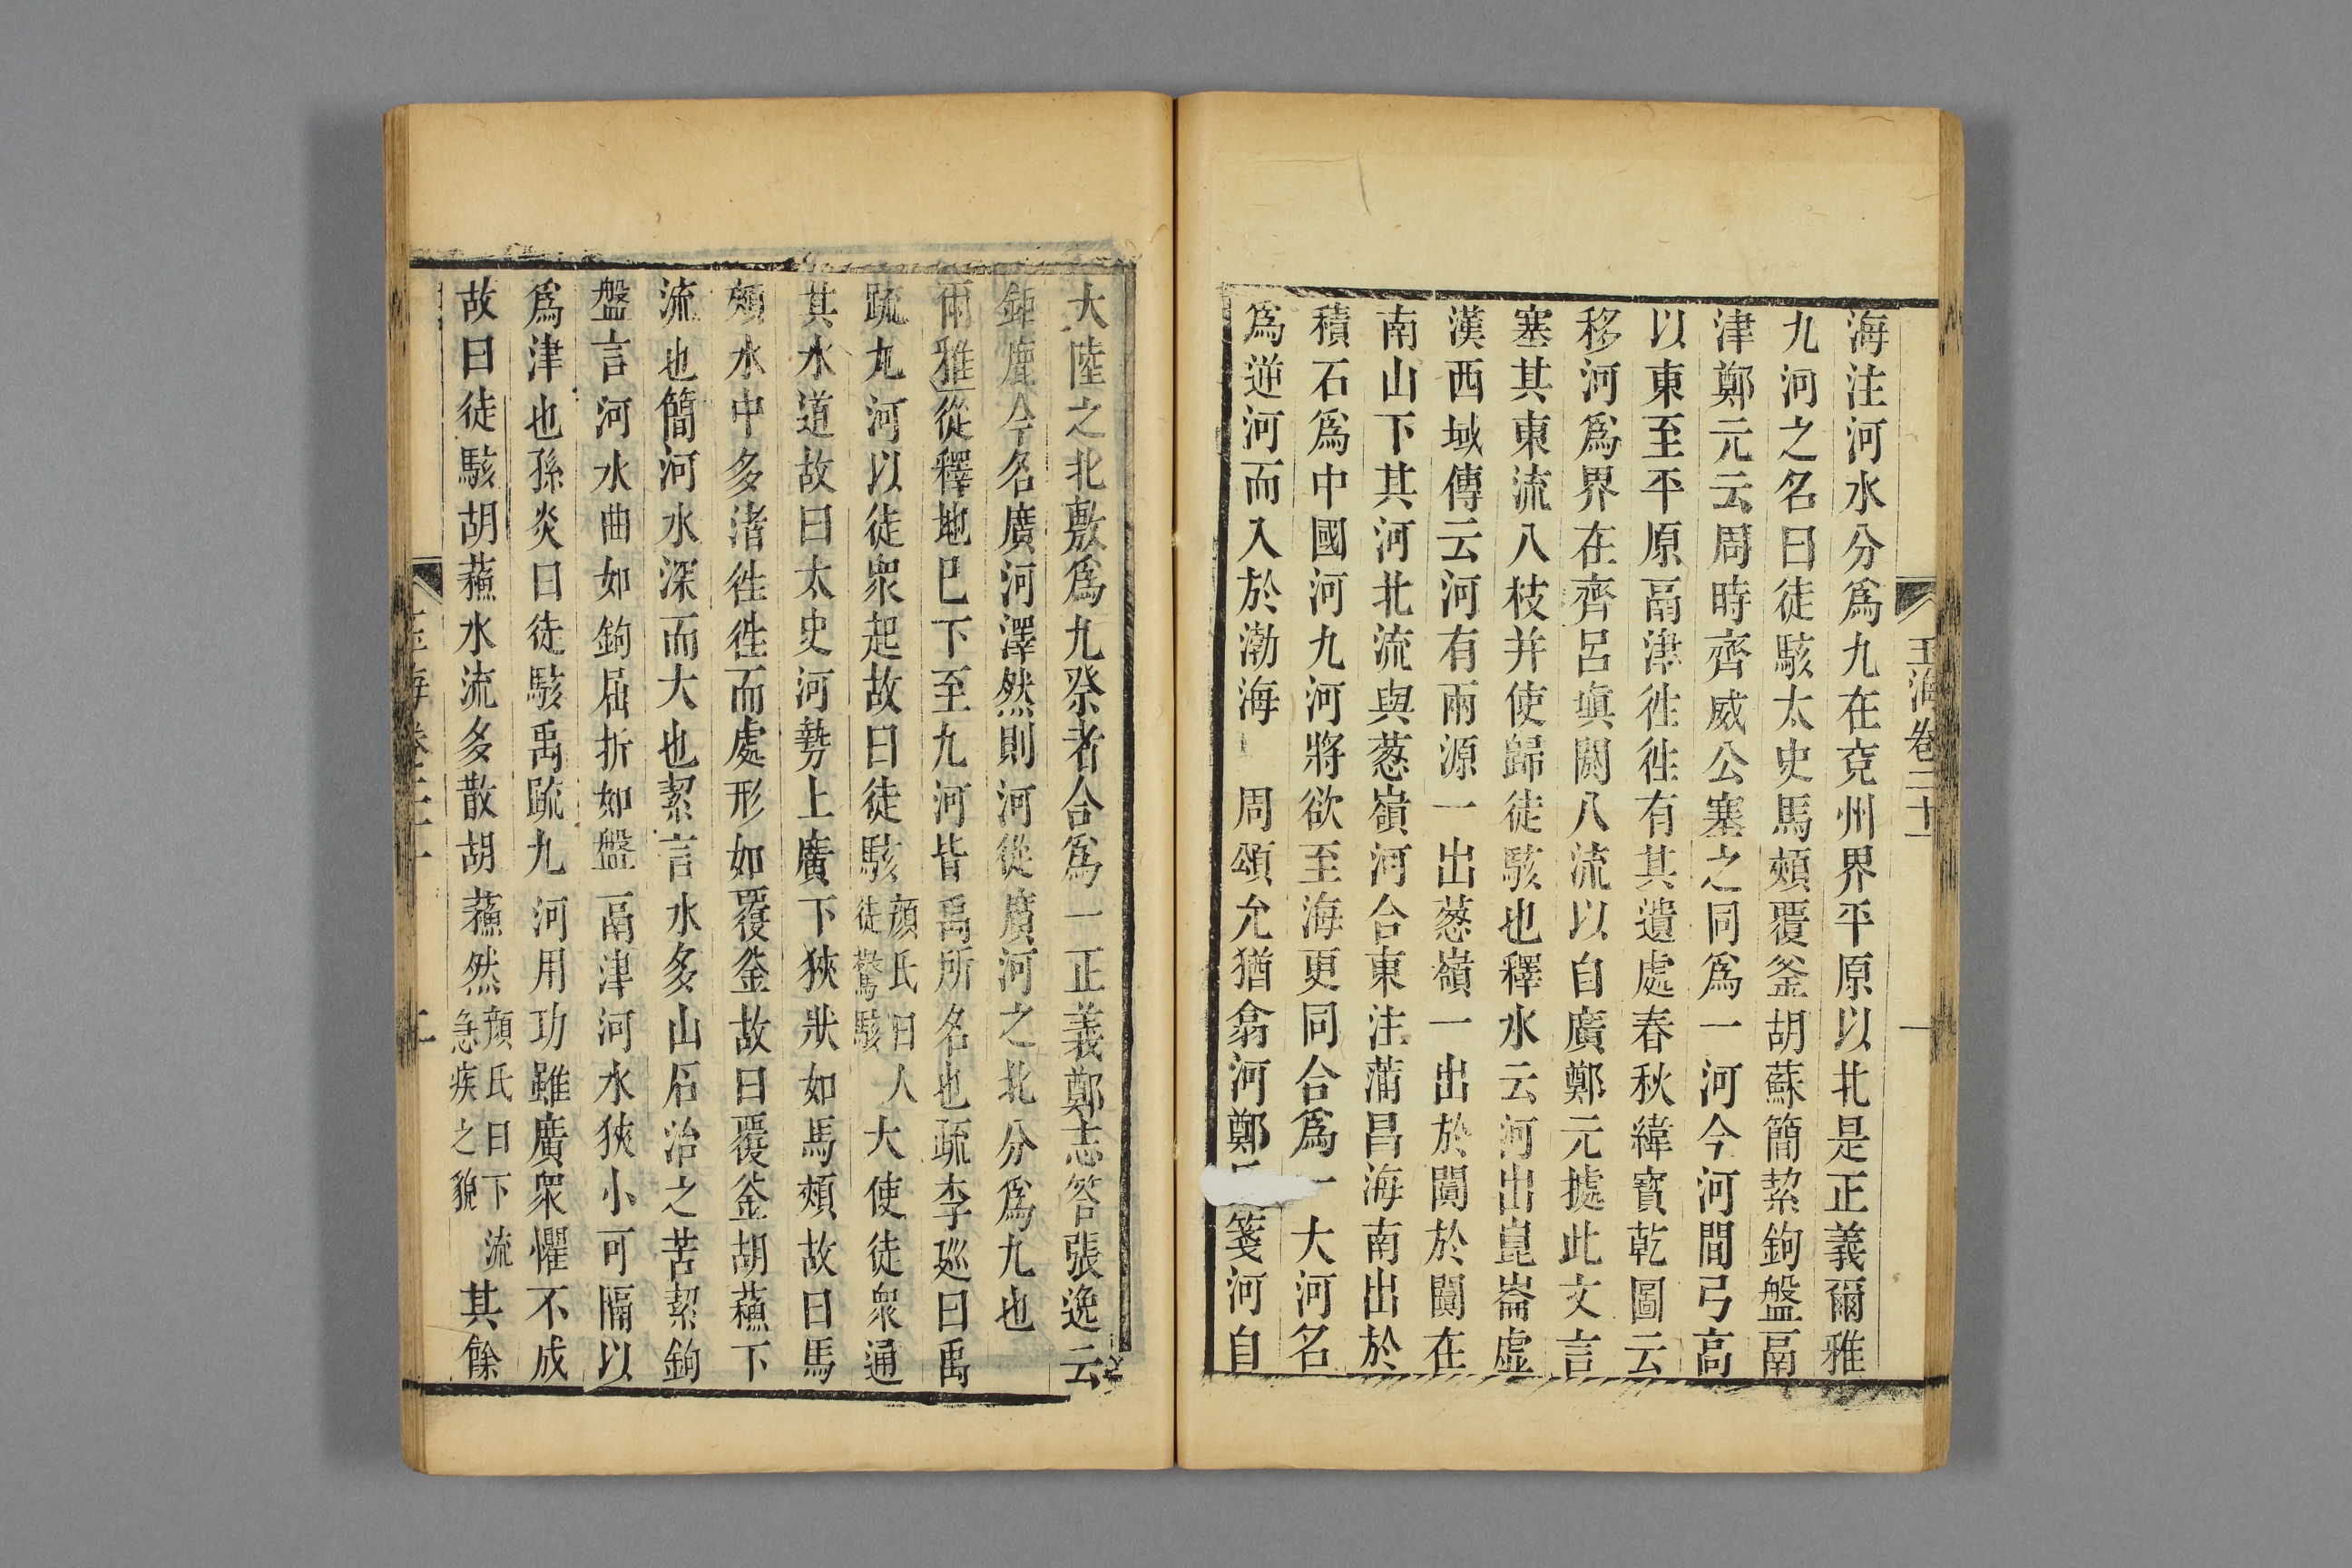 玉海卷二十 一
海注河水分爲九在兗州界平原以北是正義爾雅
九河之名曰徒駭太史馬頰覆釜胡蘇簡絜鉤盤鬲
津鄭元云周時齊威公塞之同爲一河今河間弓高
以東至平原鬲津徃徃有其遺處春秋緯寳乾圖云
移河爲界在齊呂塡閼八流以自廣鄭元㨿此文言
塞其東流八枝并使歸徒駭也釋水云河出崑崙虛
漢西域傳云河有兩源一出葱嶺一出於闐於闐在
南山下其河北流與葱嶺河合東注蒲昌海南出於
積石爲中國河九河將欲至海更同合爲一大河名
爲逆河而入於渤海 周頌允猶翕河鄭箋河自
大陸之北敷爲九祭者合爲一正義鄭志答張逸云
鉅鹿今名廣河澤然則河從廣河之北分爲九也
爾雅從釋地巳下至九河皆禹所名也疏李廵曰禹
疏九河以徒衆起故曰徒駭顔氏曰人徒驚駭大使徒衆通
其水道故曰太史河勢上廣下狹狀如馬頰故曰馬
頰水中多渚徃徃而處形如覆釜故曰覆釜胡蘓下
流也簡河水深而大也絜言水多山石治之苦絜鉤
盤言河水曲如鉤屈折如盤鬲津河水狹小可隔以
爲津也孫炎曰徒駭禹疏九河用功雖廣衆懼不成
故曰徒駭胡蘓水流多散胡蘓然顔氏曰下流急疾之貌其餘
玉海卷二十 二